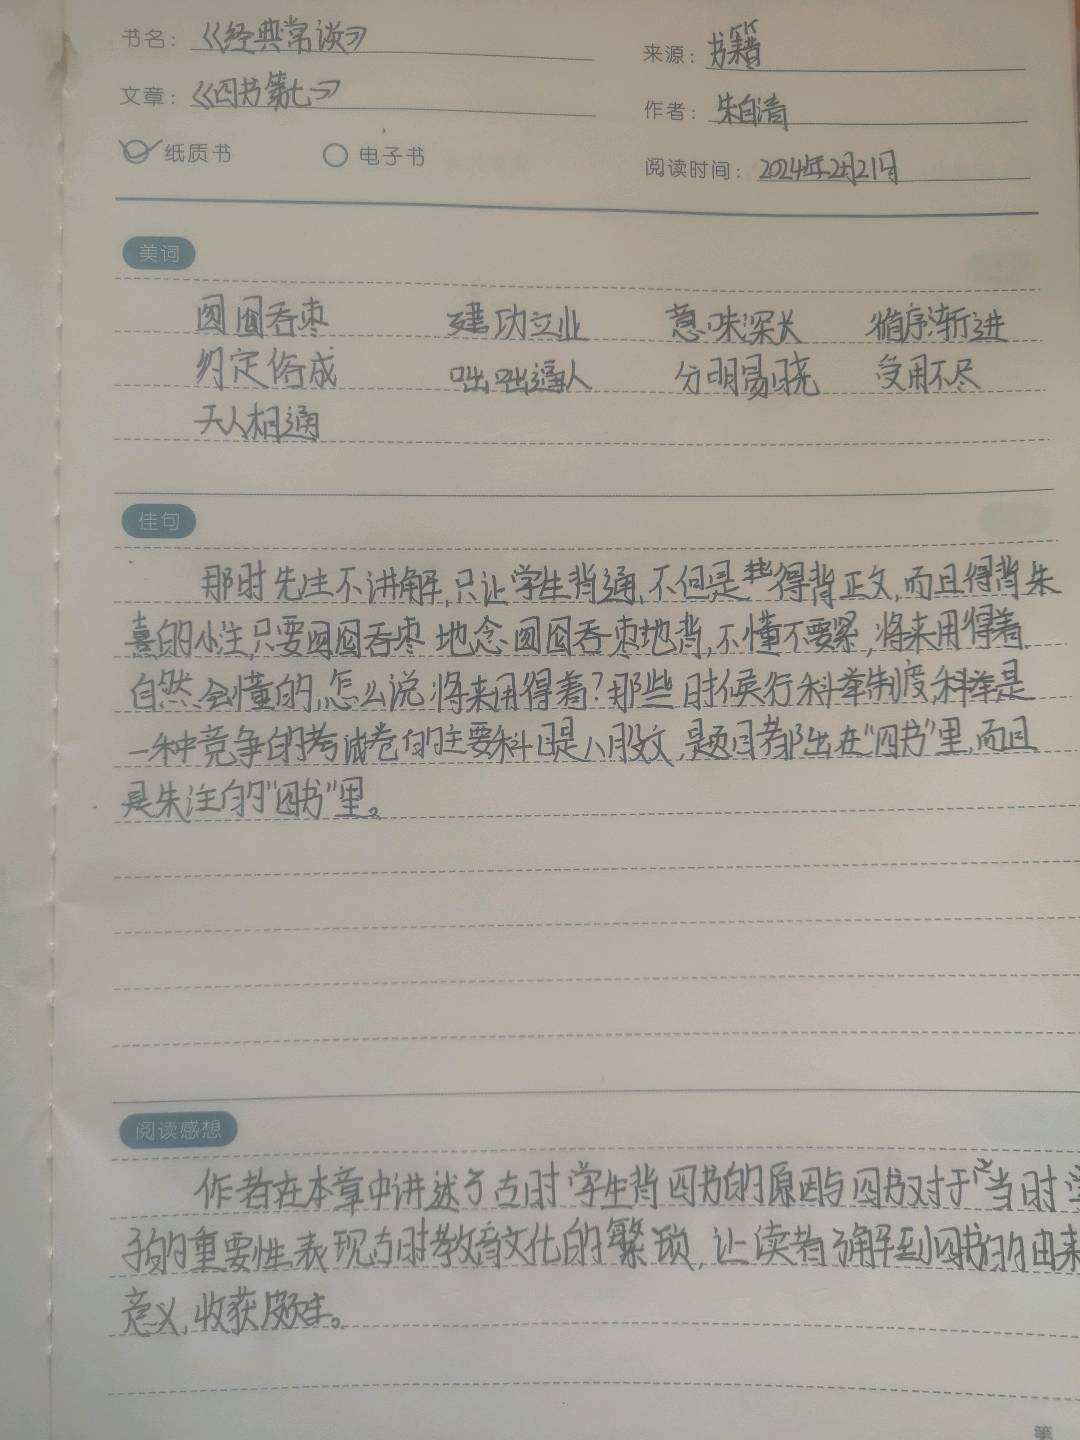 书名：《经典常谈》
来源：书籍
文章：《四书第七》
作者：朱自清
纸质书 电子书
阅读时间：2024年2月21日
美词
囫囵吞枣 建功立业 意味深长 循序渐进
约定俗成 咄咄逼人 分明易晓 受用不尽
天人相通
佳句
那时先生不讲解,只让学生背诵,不但是得背正文,而且得背朱
熹的小注,只要囫囵吞枣地念囫囵吞枣地背,不懂不要紧,将来用得着
自然会懂的,怎么说将来用得着?那些时候行科举制度,科举是
一种竞争的考试卷的主要科目是八股文,题目都出在"四书"里,而且
是朱注的"四书"里。
阅读感想
作者在本章中讲述了古时学生背四书的原因与四书对于当时学
子的重要性表现古时教育文化的繁琐,让读者了解到四书的由来
意义,收获颇丰。
第